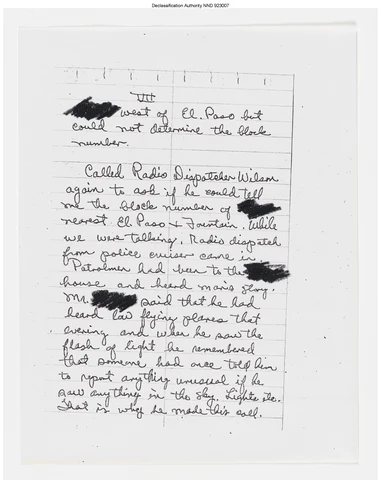 Declassification Authority NND 923007
VII
west of El. Paso but
could not determine the block
number.
Called Radio Dispatcher Wilson
again to ask if he could tell
me the block number of
nearest El Paso & Fountain. While
we were talking, Radio dispatch
from police cruiser came in.
Patrolmen had been to the
house and heard man's story.
Mr. said that he had
heard low flying planes that
evening and when he saw the
flash of light he remembered
that someone had once told him
to report anything unusual if he
saw anything in the sky. Lights etc.
That is why he made this call.